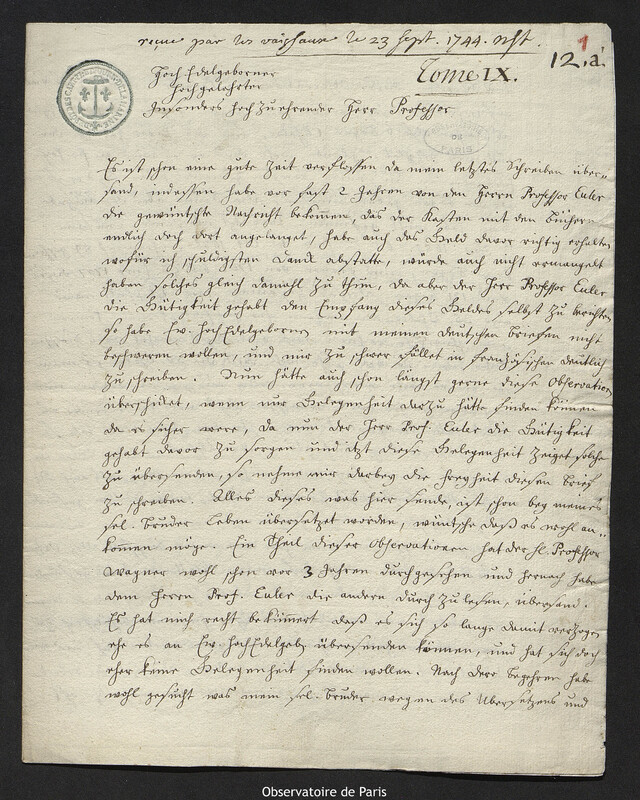 reçue par les vaisseaux le 23 Sept. 1744. nst.
1
12.a.
Tome IX.
Hoch Edelgebohrner
Hochgelehrter
Insonders hoch zu ehrender Herr Professor
DE
PARIS
Es ist schon eine gute Zeit verflossen da mein letztes Schreiben über-
sand, indessen habe vor fast 2 Jahren von den Herrn Professor Euler
die gewünschte Nachricht bekommen, das der Kasten mit den Büchern
endlich doch dort angelanget, habe auch das Geld davor richtig erhalten
wofür ich schuldigsten Danck abstatte, würde auch nicht ermangelt
haben solches gleich damahl zu thun, da aber der Herr Professor Euler
die Gütigkeit gehabt den Empfang dieses Geldes selbst zu berichten
so habe Ew. HochEdelgebohrn mit meinen deutschen Briefen nicht
beschweren wollen, und mir zu schwer fället in französischen deutlich
zu schreiben. Nun hätte auch schon längst gerne diese Observation
überschicket, wenn nur Gelegenheit darzu hätte finden können
da es sicher were, da nun der Herr Prof. Euler die Gütigkeit
gehabt davor zu sorgen und itzt diese Gelegenheit zeiget solche
zu übersenden, so nehme mir darbey die Freyheit diesen Brief
zu schreiben. Alles dieses was hier sende, ist schon bey meines
sel. Bruder Leben übersetzet worden, wünsche daß es wohl an-
kommen möge. Ein Theil dieser Observationen hat der H. Professor
Wagner wohl schon vor 3 Jahren durchgesehen und hernach habe
dem Herrn Prof. Euler die andern durch zu lesen, übersand.
Es hat mich recht bekümmert daß es sich so lange damit verzogen
ehe es an Ew. HochEdelgeb. übersenden können, und hat sich doch
eher keine Gelegenheit finden wollen. Nach dero Begehren habe
wohl gesucht was mein sel. Bruder wegen des Übersetzens und
Observatoire de Paris